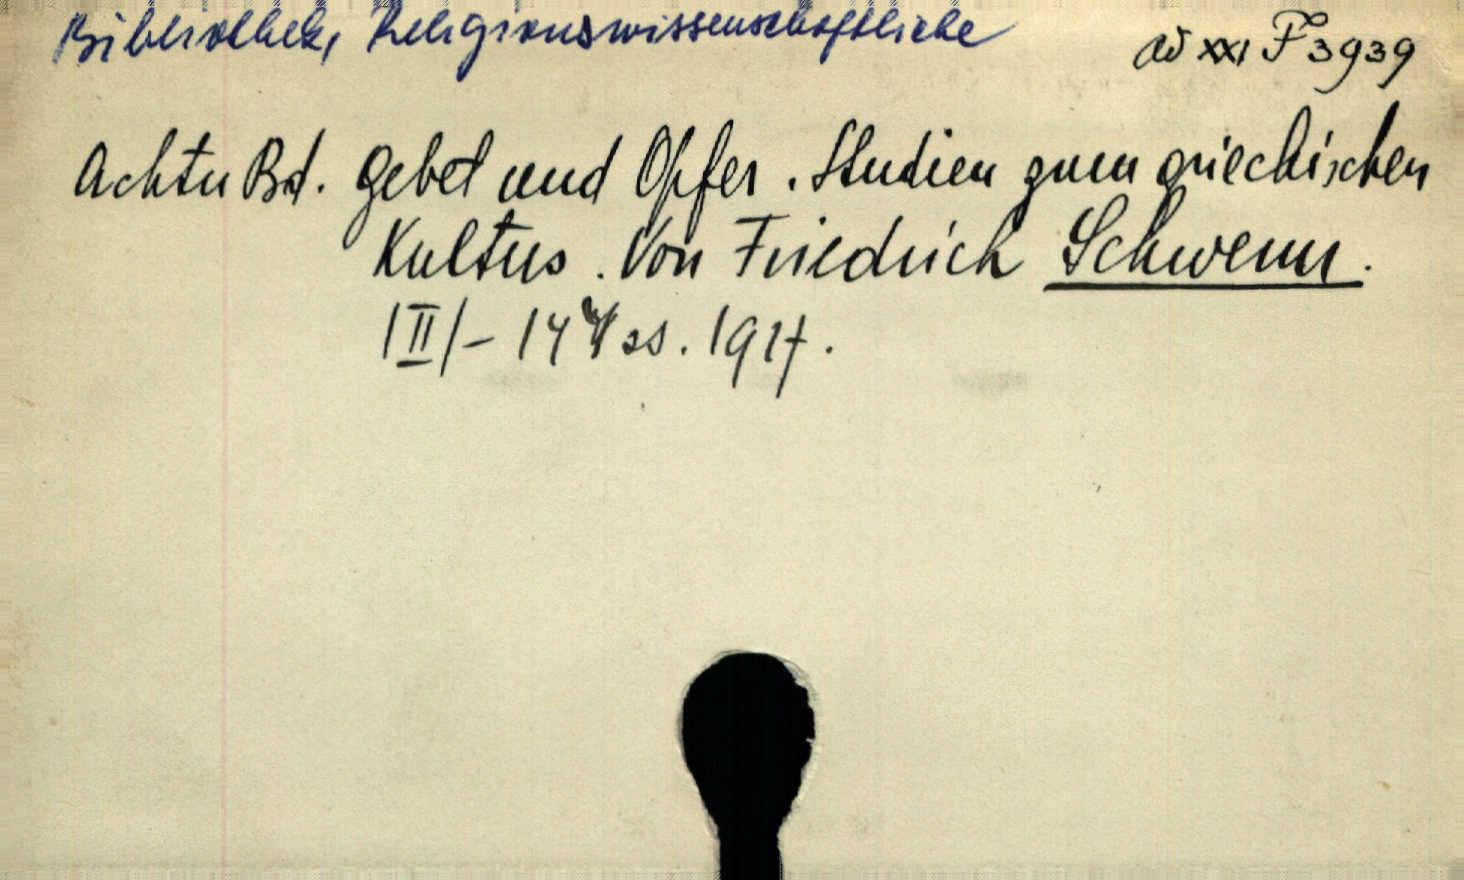 Bibliothek, Religionswissenschaftliche
ad XXI F 3939
Achter Bd. Gebet und Opfer. Studien zum griechischen
Kultus. Von Friedrich Schwenn.
|II|- 144 ss. 1917.